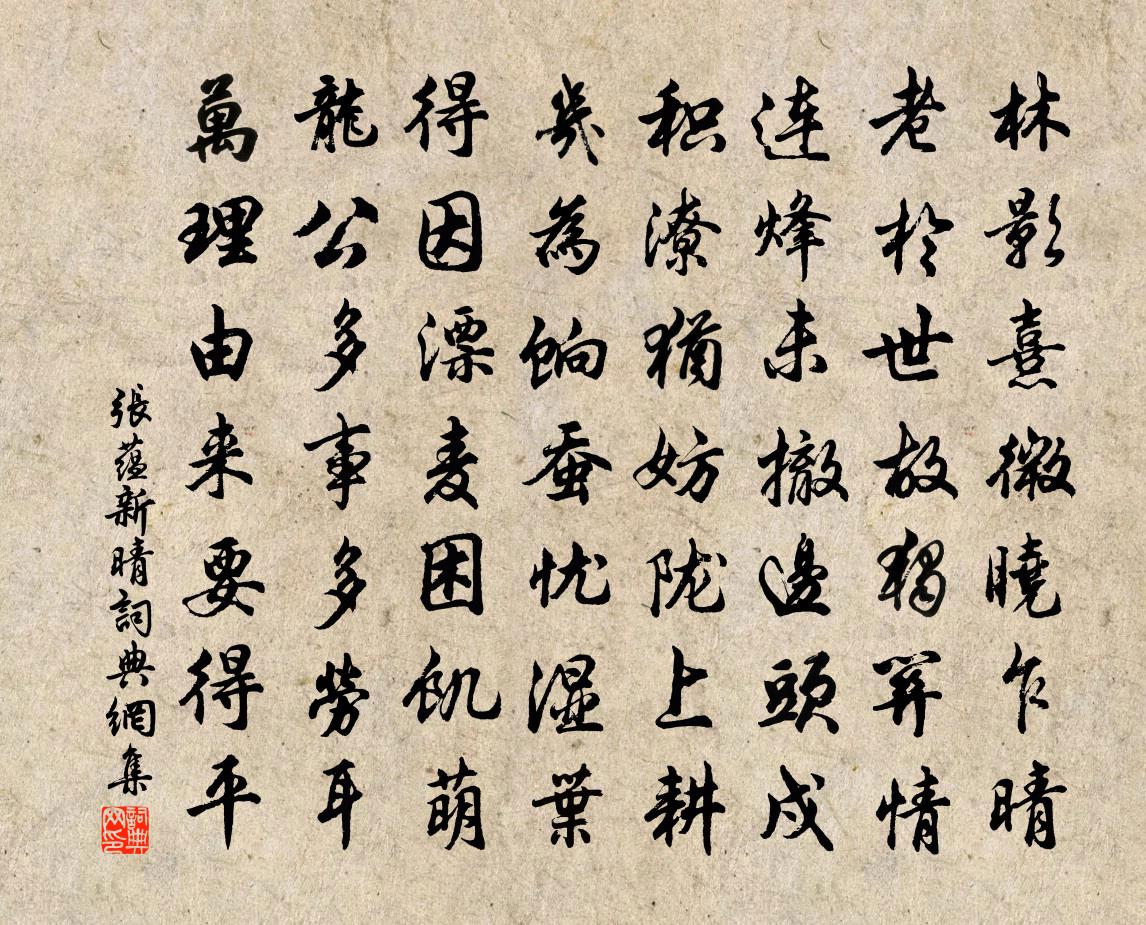 林影熹微曉乍晴
老於世故獨關情
連烽未撤邊頭戍
积潦猶妨陇上耕
幾為餉蚕忧湿葉
得因漂麦困飢萌
龍公多事多勞耳
萬理由来要得平
張蘊新晴詞典網集
詞典網印